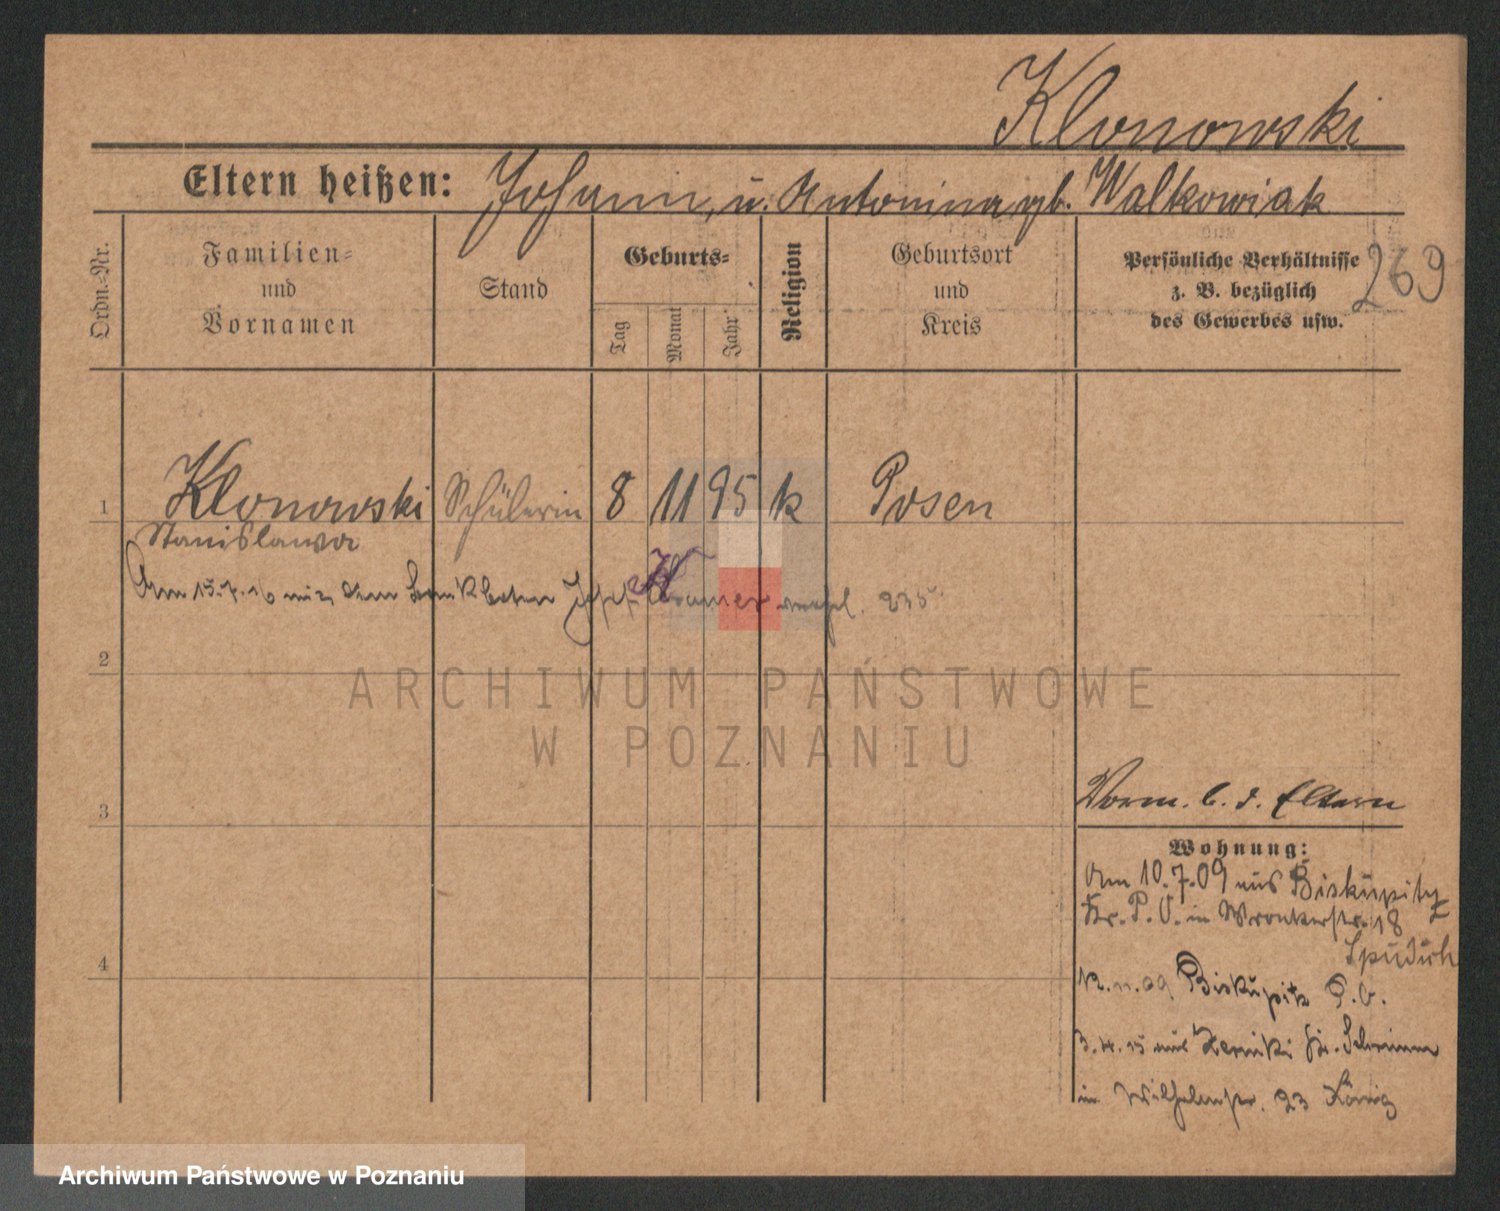 Klonowski
Eltern heißen: Johann u. Antonina gb. Walkowiak
269
Ordn.-Nr.
Familien-
und
Vornamen
Stand
Geburts-
Tag
Monat
Jahr
Religion
Geburtsort
und
Kreis
Persönliche Verhältnisse
z. B. bezüglich
des Gewerbes usw.
1 Klonowski Schülerin 8 11 95 k Posen
Stanislawa
Am 15.7.16 mit dem Bankboten Josef Kramer verehel. 235
2
ARCHIWUM PAŃSTWOWE
W POZNANIU
3
Vorm. b. d. Eltern
Wohnung:
Am 10.7.09 aus Biskupitz
Kr. P. O. in Wronkerstr. 18
4
12.11.09 Biskupitz P. O.
3.4.15 aus Kr. Schrimm
in Wilhelmstr. 23 König
Archiwum Państwowe w Poznaniu